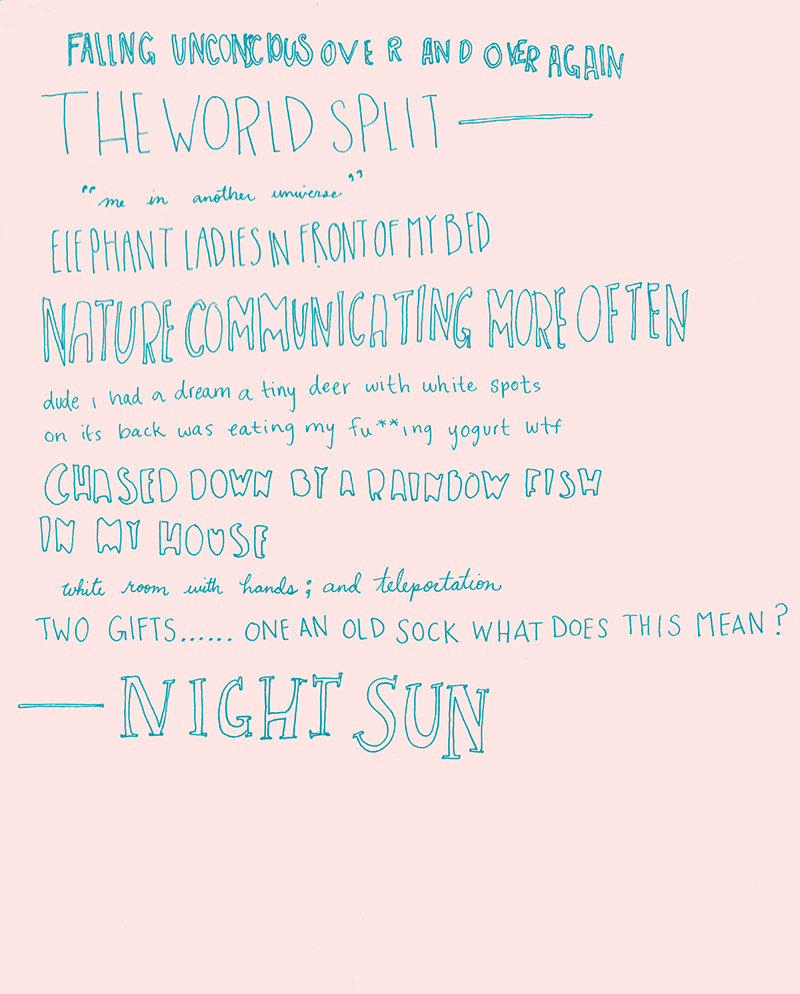 FALLING UNCONCIOUS OVER AND OVER AGAIN
THE WORLD SPLIT —
"me in another universe"
ELEPHANT LADIES IN FRONT OF MY BED
NATURE COMMUNICATING MORE OFTEN
dude i had a dream a tiny deer with white spots
on its back was eating my fu**ing yogurt wtf
CHASED DOWN BY A RAINBOW FISH
IN MY HOUSE
white room with hands; and teleportation
TWO GIFTS...... ONE AN OLD SOCK WHAT DOES THIS MEAN?
— NIGHT SUN